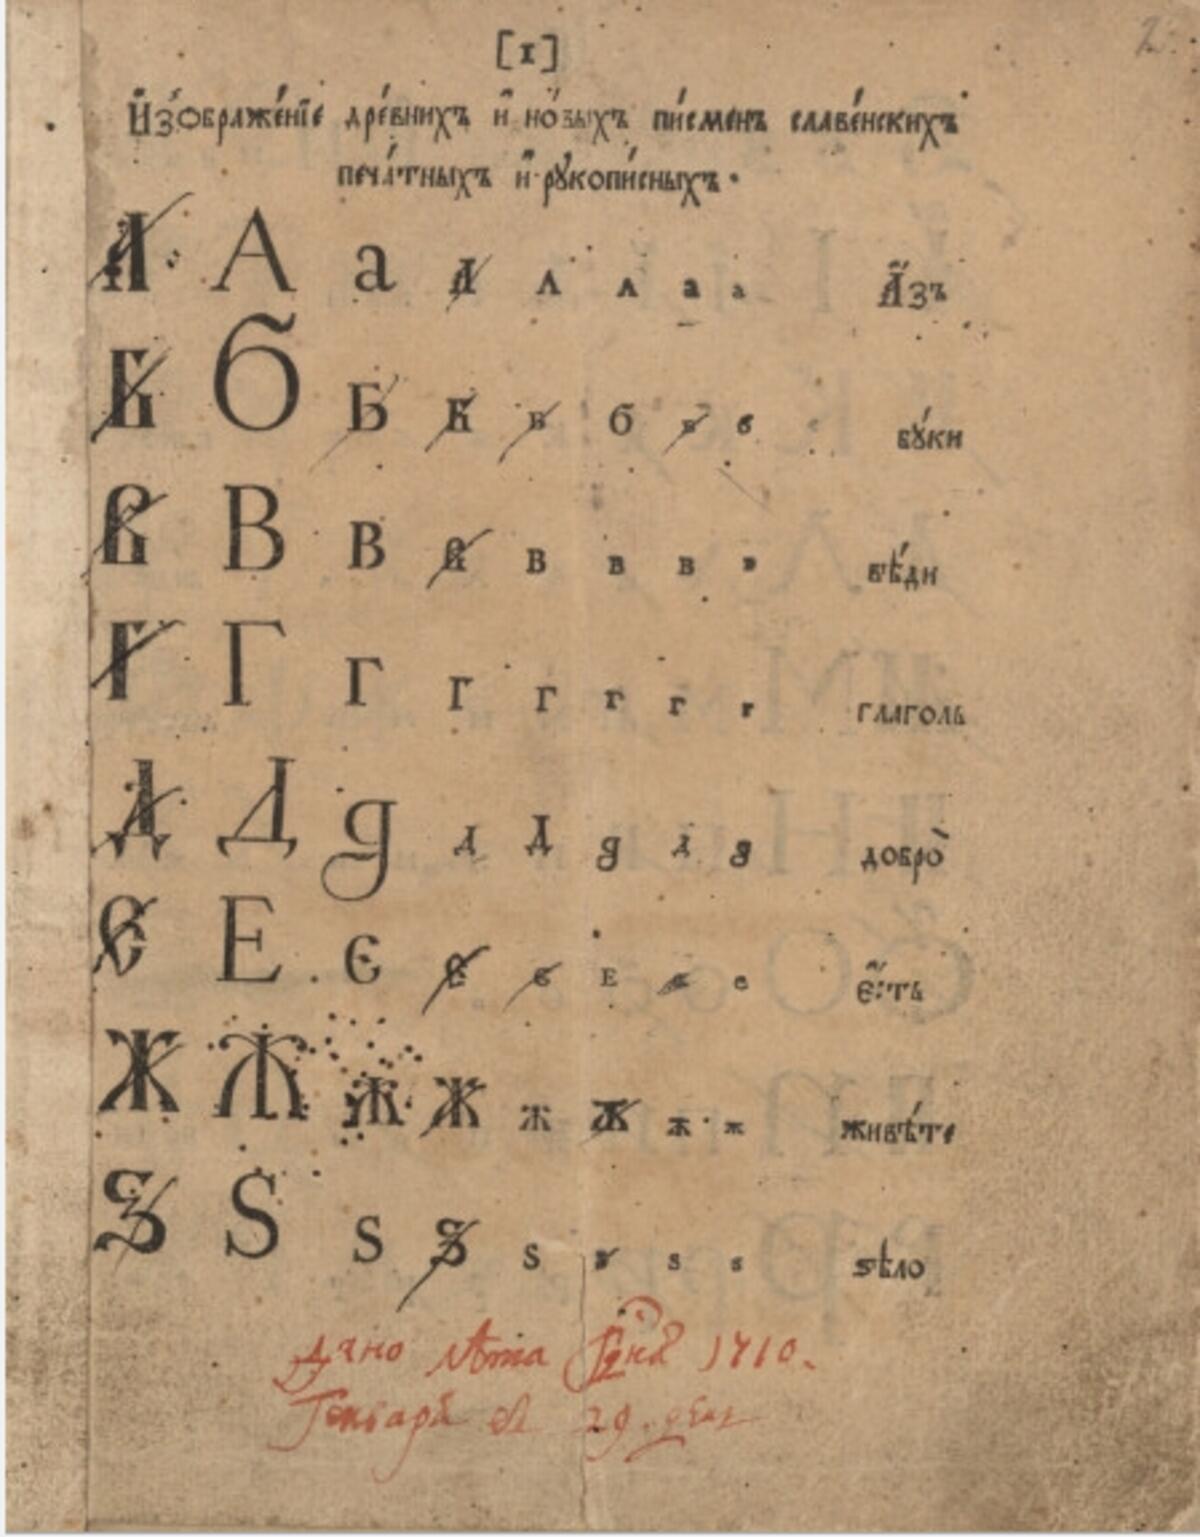 [1]
И҆зѡбраже́нїе дре́внихъ и҆ но́выхъ пи́сменъ славе́нскихъ
печа́тныхъ и҆ рꙋкопи́сныхъ.
А А а А А А а а А҆́зъ
Б Б Б Б Б б Б б бꙋ́ки
В В В В В В В В вѣ́ди
Г Г Г Г Г Г Г Г глаголь
Д Д д Д Д д Д д добро̀
Є Е є Є є Е є е є҆́сть
Ж Ж Ж Ж Ж Ж Ж Ж живѣ́те
Ѕ Ѕ Ѕ Ѕ Ѕ Ѕ Ѕ Ѕ ѕѣло
Дано лѣта Гдня 1710.
Генваря въ 29. день
2.